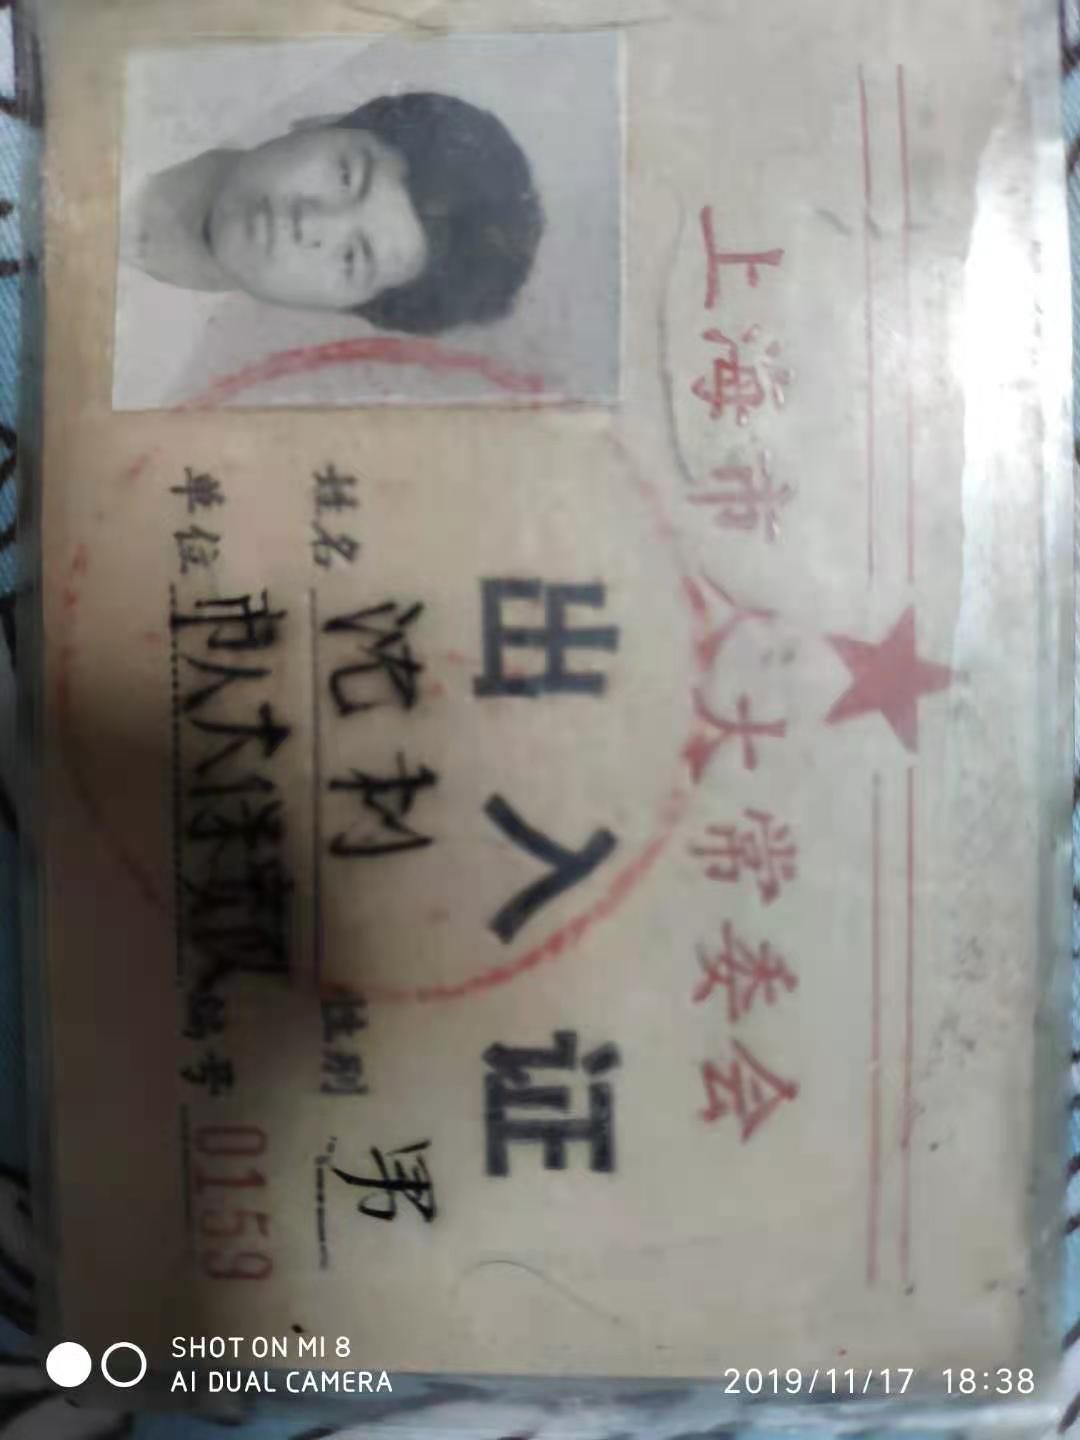 上海市人大常委会
出入证
姓名 沈树 性别 男
单位 市人大 编号 0159
SHOT ON MI 8
AI DUAL CAMERA
2019/11/17 18:38